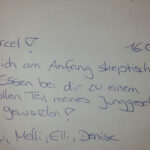 rcel! 16.0
ich am Anfang skeptisch
Essen bei dir zu einem
ollen Teil meines Jungges
geworden!
, Melli, Elli, Denise